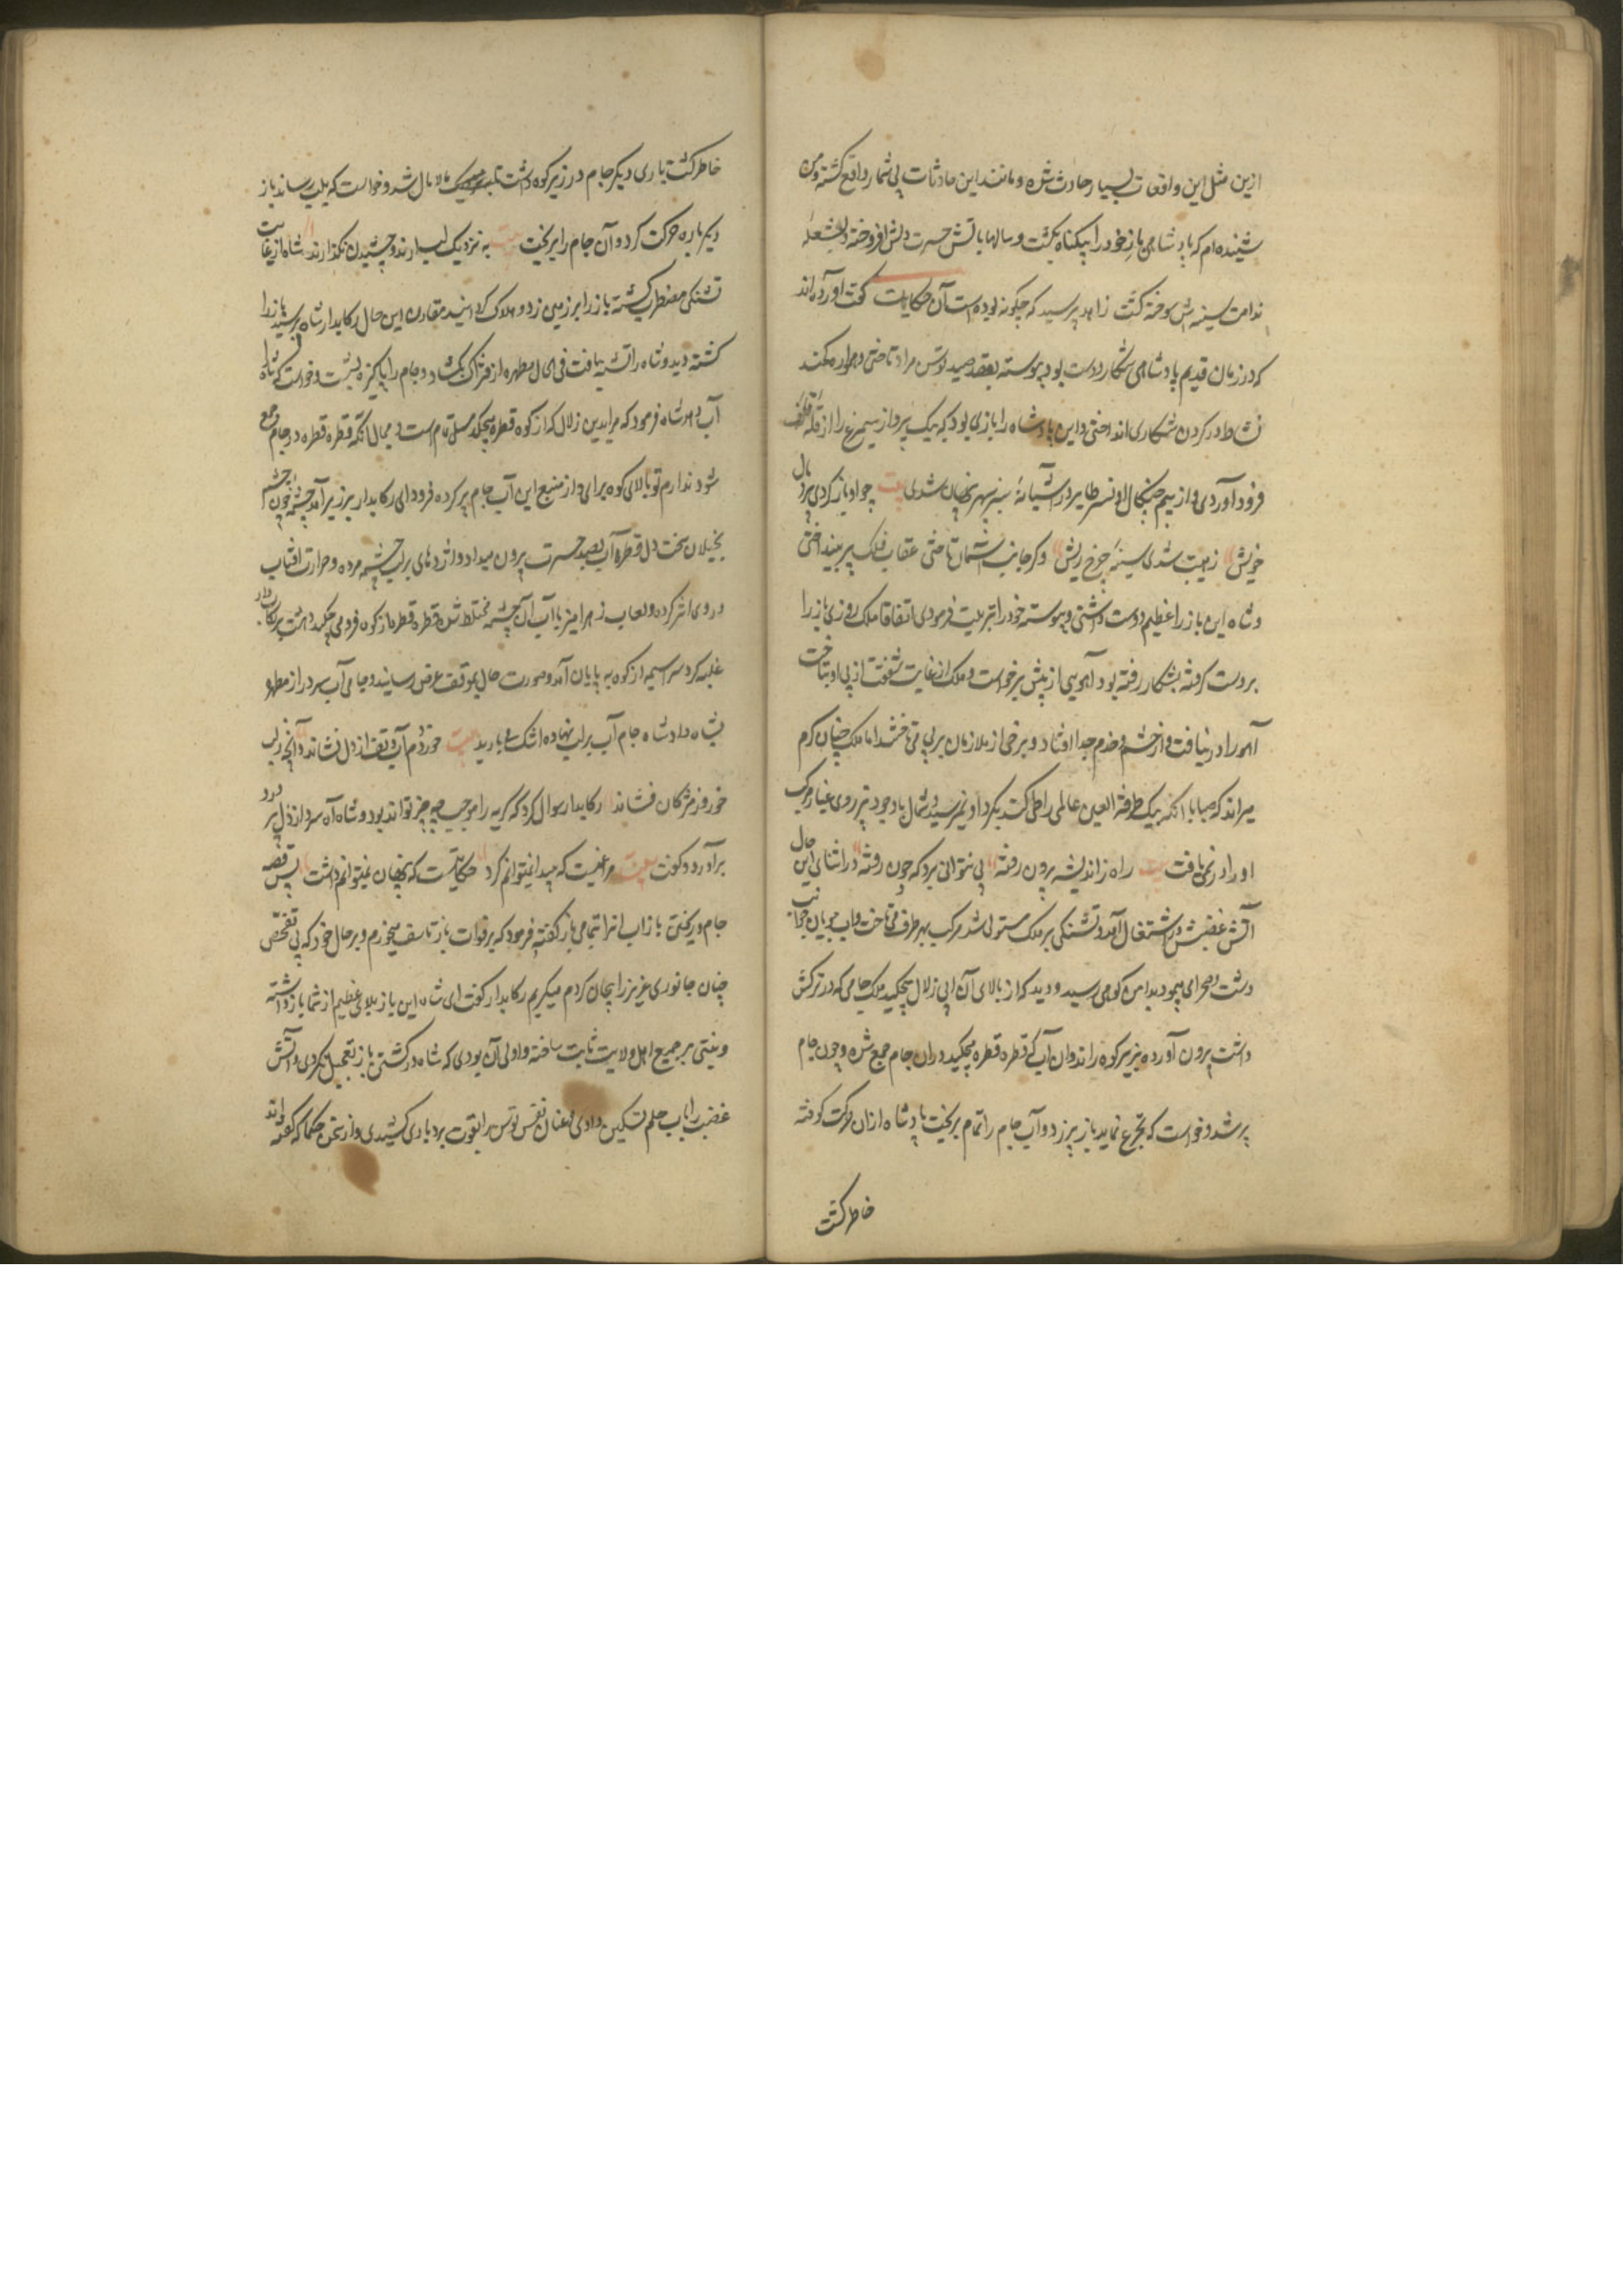 ازین مثل این واقعات بسیار حادث شده و مانند این حادثات بی شمار واقع گشته و من
شنیده ام که پادشاهی باز خود را بیکناه بکشت و سالها باتش حسرت دلش افروخته و بشعلهٔ
ندامت سینه اش سوخته کشت زاهد پرسید که چکونه بوده است آن حکایات گفت آورده اند
که در زمان قدیم پادشاهی شکار دوست بود پیوسته بقصد صید توسن مراد تاختی و هموار کمند
نشاط در کردن شکاری انداختی و این پادشاه را بازی بود که بیک پرواز سیمرغ را از قلهٔ قاف
فرود آوردی و از بیم چنکال او نسر طایر در آشیانهٔ سبز سپهر نهان شدی بیت چو او باز کردی پر و بال
خویش زهیبت شدی سینهٔ چرخ ریش و کر جانب آسمان تاختی عقاب فلک پر بینداختی
و شاه این باز را عظیم دوست داشتی و پیوسته خود را تربیت فرمودی اتفاقا ملک روزی باز را
بر دست کرفته بشکار رفته بود آهویی از پیش برخواست و ملک از غایت شعفت از پی او بتاخت
آهو را در نیافت و از حشم و خدم جدا افتاد و برخی از ملازمان بر پی می تاختند اما ملک چنان کرم
میراند که صبا با آنکه بیک طرفة العین عالمی را طی کند بکرد او نمیرسید و شمال با وجود تیز روی غبار مرکب
او را در نمی یافت بیت راه ز اندیشه برون رفتهٔ پی نتوانی برد که چون رفتهٔ در اثنای این حال
آتش عطشش در اشتعال آمد و تشنکی بر ملک مستولی شد مرکب بهر طرف می تاخت و آب جویان جوانب
دشت و صحرا می پیمود بدامن کوهی رسید و دید که از بالای آن آبی زلال میچکید ملک جامی که در ترکش
داشت برون آورده بزیر کوه راند و ان آب که قطره قطره میچکید در ان جام جمع شده و چون جام
پر شد و خواست که تجرع نماید باز پر زد و آب جام را تمام بریخت پادشاه از ان حرکت کوفته
خاطر کشت
خاطر کشت باری دیکر جام در زیر کوه داشت تا مالامال شد و خواست که بلب رساند باز
دیکر باره حرکت کرد و آن جام را بریخت بیت به نزدیک لب آرند و چشیدن نکذارند شاه از غایت
تشنکی مضطرب کشته باز را بر زمین زد و هلاک کردانید مقارن این حال رکابدار شاه برسید باز را
کشته دید و شاه را تشنه یافت فی الحال مطهره از فتراک بکشاد و جام را پاکیزه بشست و خواست که شاه را
آب دهد شاه فرمود که مرا بدین زلال که از کوه قطره میچکد میل تمام است و مجال آنکه قطره قطره در جام جمع
شود ندارم تو بالای کوه برای و از منبع این آب جام پر کرده فرود ای رکابدار بر زبر آمد چشمهٔ چون چشم
بخیلان سخت دل قطرهٔ آب بصد حسرت برون میداد و اژدهای بر لب چشمه مرده و حرارت افتاب
در وی اثر کرده و لعاب زهرامیز با آب آن چشمه مختلط شده قطره قطره از کوه فرو می چکید دهشت بر رکابدار
غلبه کرد سراسیمه از کوه به پایان آمد و صورت حال بموقف عرض رسانید و جامی آب سرد از مطهره
بشاه داد شاه جام آب بر لب نهاده اشک می بارید بیت خورد دم آب و تف از دل نشاند وانچه ز لب
خورد ز مژکان فشاند رکابدار سوال کرد که کریه را موجب چه چیز تواند بود و شاه آه سرد از دل پر درد
برآورد و کفت بیت مرا غمیست که پیدا نمیتوانم کرد حکایتیست که پنهان نمیتوانم داشت پس قصهٔ
جام و ریختن باز اب انرا بتمامی باز کفته فرمود که بر فوات باز تاسف میخورم و بر حال خود که بی تفحص
چنان جانوری عزیز را بیجان کردم میکریم رکابدار کفت ای شاه این باز بلای عظیم از شما باز داشته
و منتی بر جمیع اهل ولایت ثابت ساخته و اولی آن بودی که شاه در کشتن باز تعجیل نکردی و آتش
غضب را باب حلم تسکین دادی و عنان نفس توسن را بقوت بردباری کشیدی و از سخن حکما که گفته اند